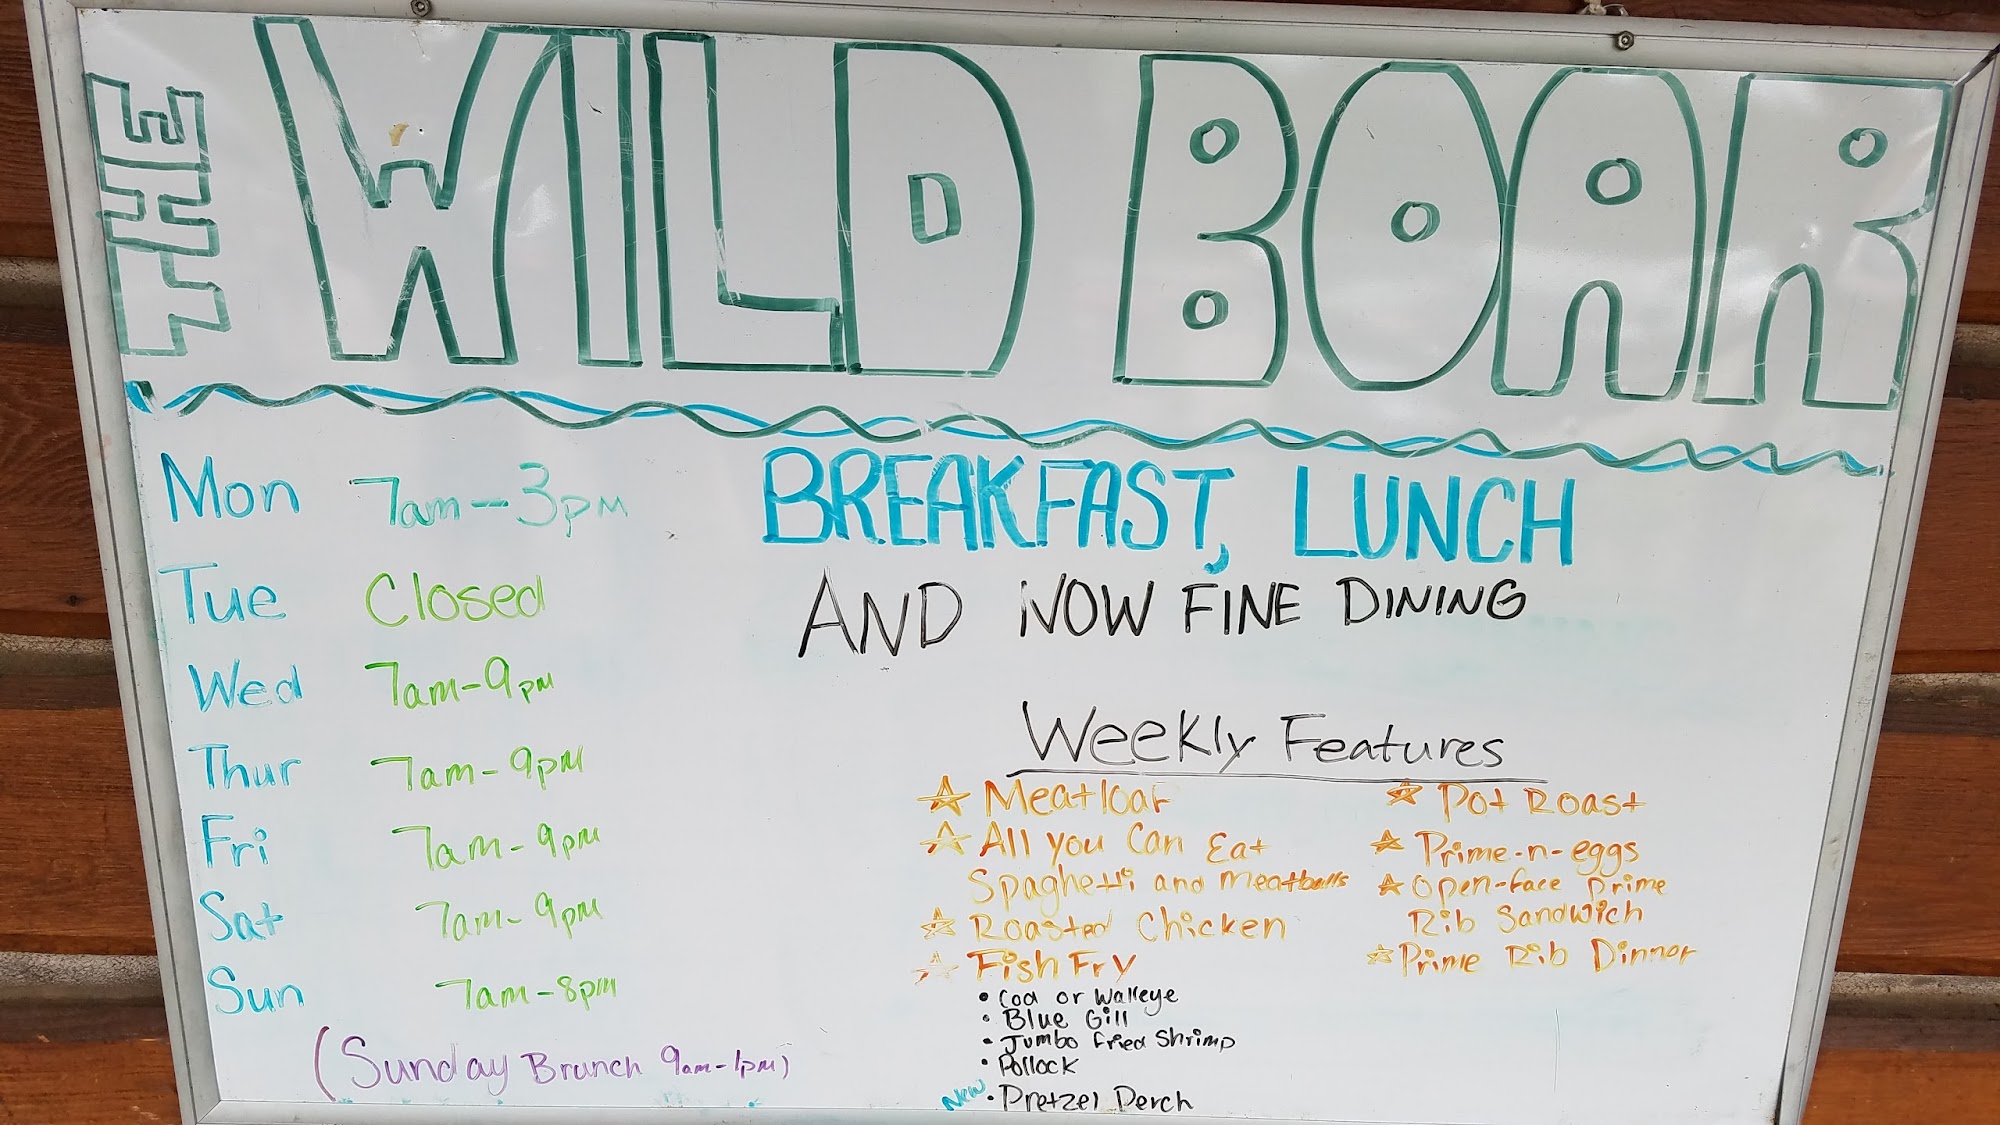 THE WILD BOAR
Mon 7am-3pm
Tue Closed
Wed 7am-9pm
Thur 7am-9pm
Fri 7am-9pm
Sat 7am-9pm
Sun 7am-8pm
(Sunday Brunch 9am-1pm)
BREAKFAST, LUNCH
AND NOW FINE DINING
Weekly Features
Meatloaf
All you Can Eat
Spaghetti and Meatballs
Roasted Chicken
Fish Fry
• Cod or Walleye
• Blue Gill
• Jumbo Fried Shrimp
• Pollock
New • Pretzel Perch
Pot Roast
Prime-n-eggs
Open-face Prime
Rib Sandwich
Prime Rib Dinner